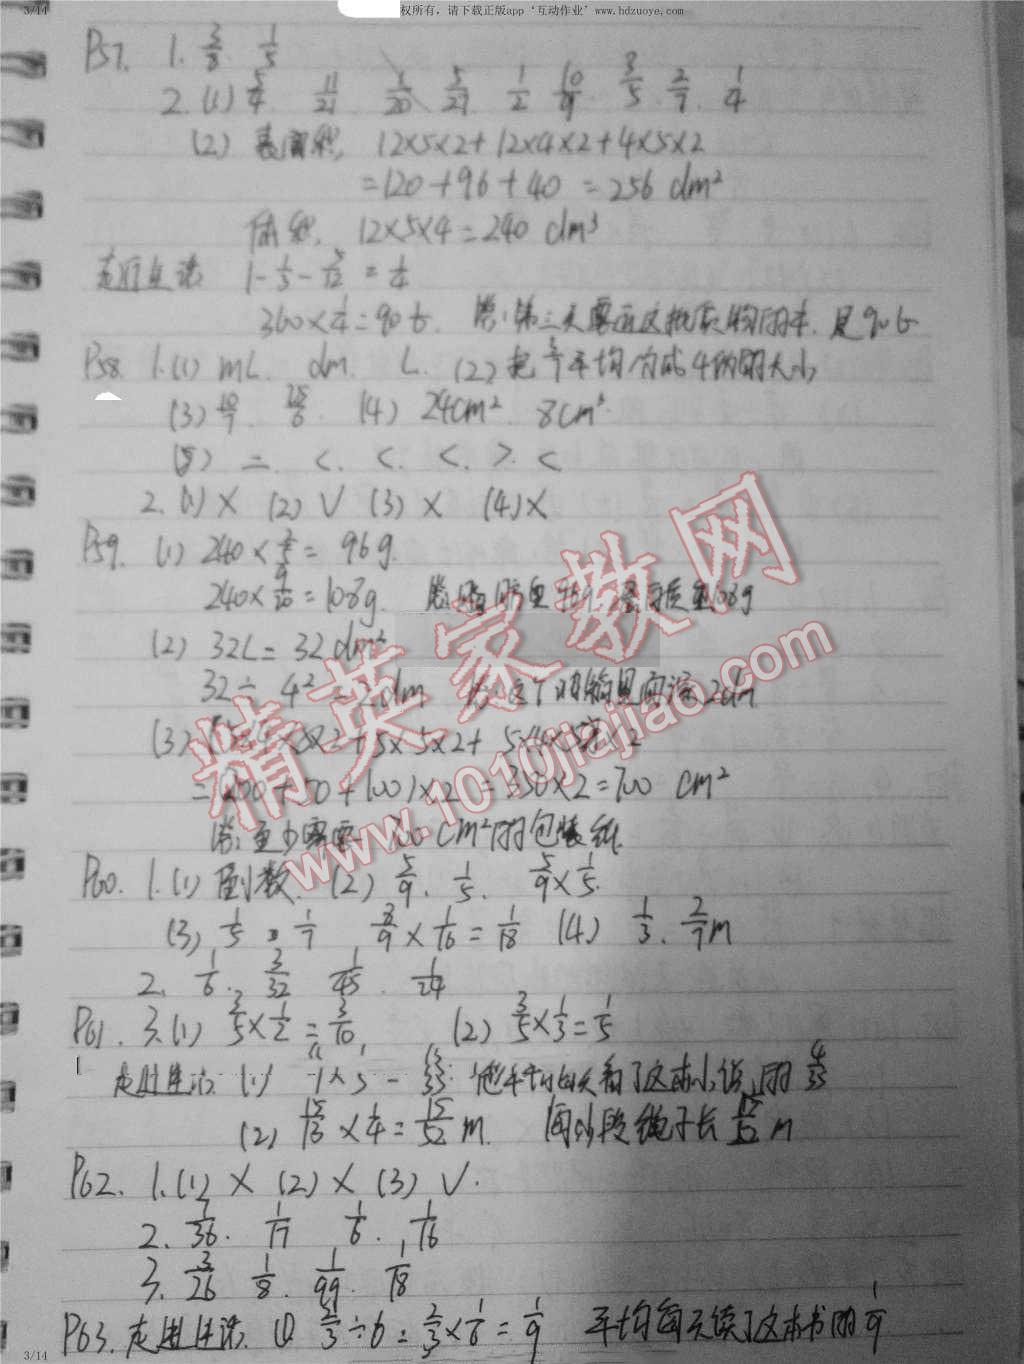 3/14
权所有，请下载正版app‘互动作业’www.hdzuoye.com
P57. 1. 3/8. 1/5
2.(1) 5/4. 11/21 1/20 5/27 1/2 10/9. 3/5. 2/7. 1/4
(2) 表面积, 12×5×2+12×4×2+4×5×2
=120+96+40 =256 dm²
体积, 12×5×4=240 dm³
走进生活 1-1/3-5/12 = 1/4
360×1/4=90 t.
P58. 1.(1) mL. dm. L. (2) 平均分成4份 的大小
(3) 10/7. (4) 24cm². 8cm³.
(5) =. <. <. <. >. <
2.(1) × (2) √ (3) × (4) ×
P59. (1) 240×2/5= 96g.
240×9/20=108g. 108g
(2) 32L= 32dm³
32÷4²=2dm 2dm
(3)
=(200+50+100)×2 =350×2=700 cm²
答:至少需要 700cm²的包装纸
P60. 1.(1) 倒数. (2) 5/9. 1/5. 5/9×1/5.
(3) 1/5, 1/7 8/9×1/16=1/18 (4) 1/3. 2/7m
2. 1/6. 3/32 1/45. 1/24
P61. 3.(1) 3/5×1/2=3/10 (2) 3/5×1/3=1/5
走进生活. (1) 他平均每天看了这本小说的 4/33
(2) 15/13×1/4=15/52 m. 每小段绳子长 15/52 m
P62. 1.(1) × (2) × (3) √.
2. 7/36. 1/17 1/6., 1/16
3. 3/26 1/8. 1/99. 1/18
P63. 走进生活. (1) 2/3÷6=2/3×1/6=1/9 平均每天读了这本书的1/9
精英家教网
www.1010jiajiao.com
3/14